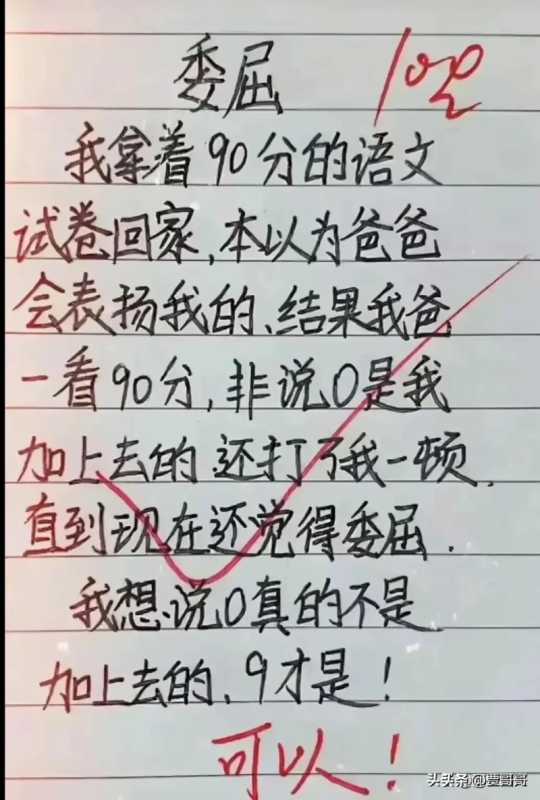 委屈
100
我拿着90分的语文
试卷回家,本以为爸爸
会表扬我的、结果我爸
一看90分,非说0是我
加上去的 还打了我一顿.
直到现在还觉得委屈.
我想说0真的不是
加上去的、9才是!
可以!
头头条@贾哥哥